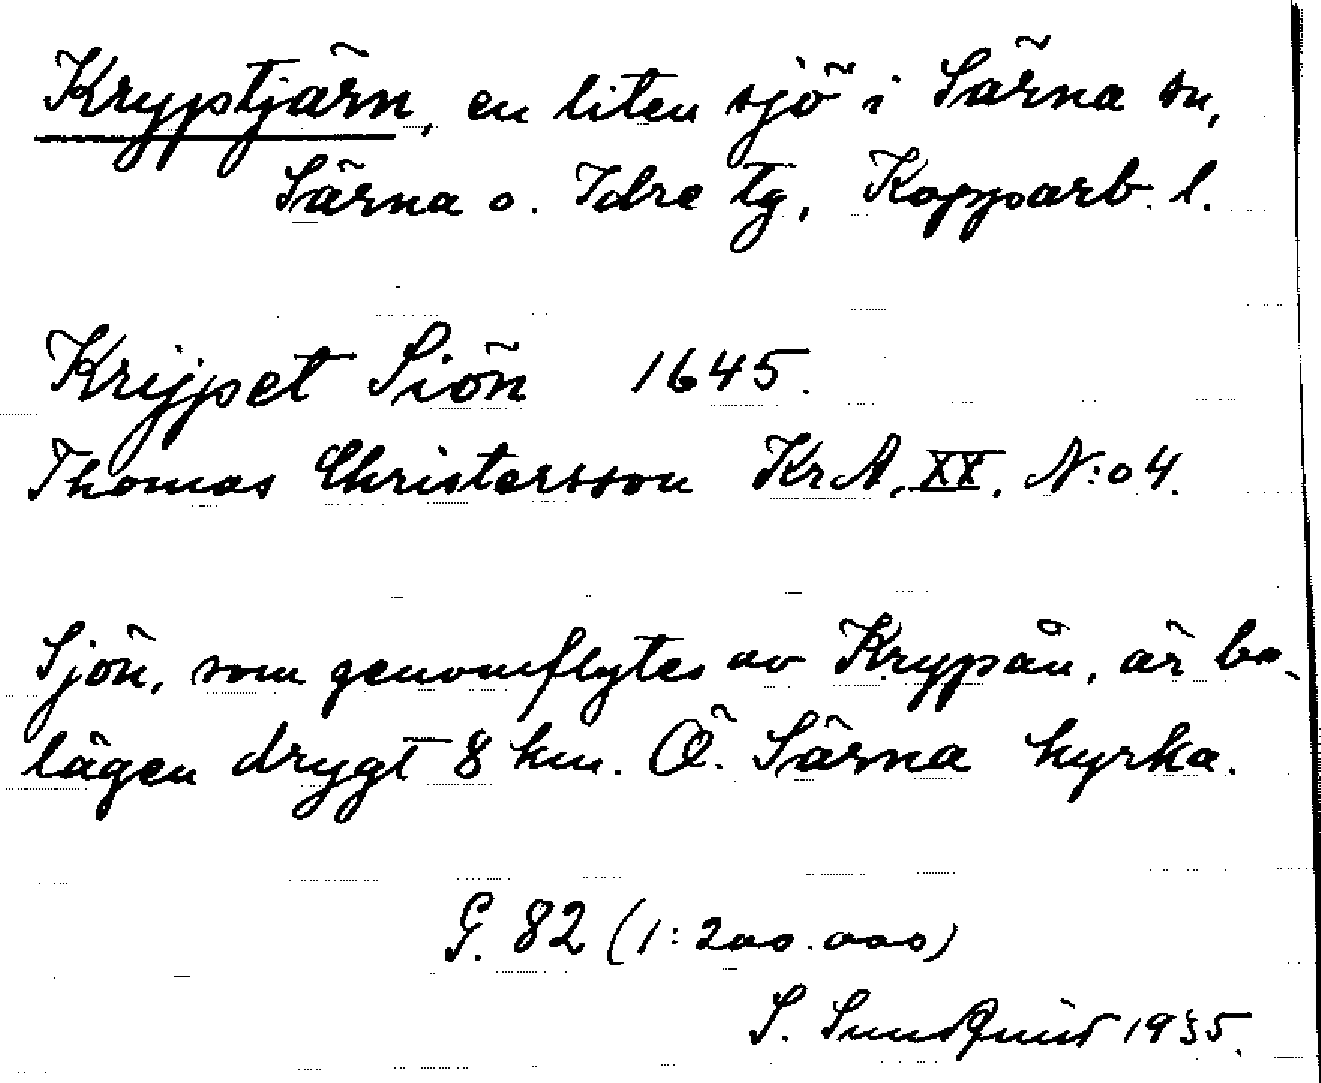 Kryptjärn, en liten sjö i Särna sn,
Särna o. Idre tg, Kopparb. l.
Krijpet Siön 1645.
Thomas Christersson KrA, XX. N:o 4.
Sjön, som genomflytes av Krypån, är be-
lägen drygt 8 km. Ö. Särna kyrka.
G. 82 (1:200.000)
S. Sundquist 1935.